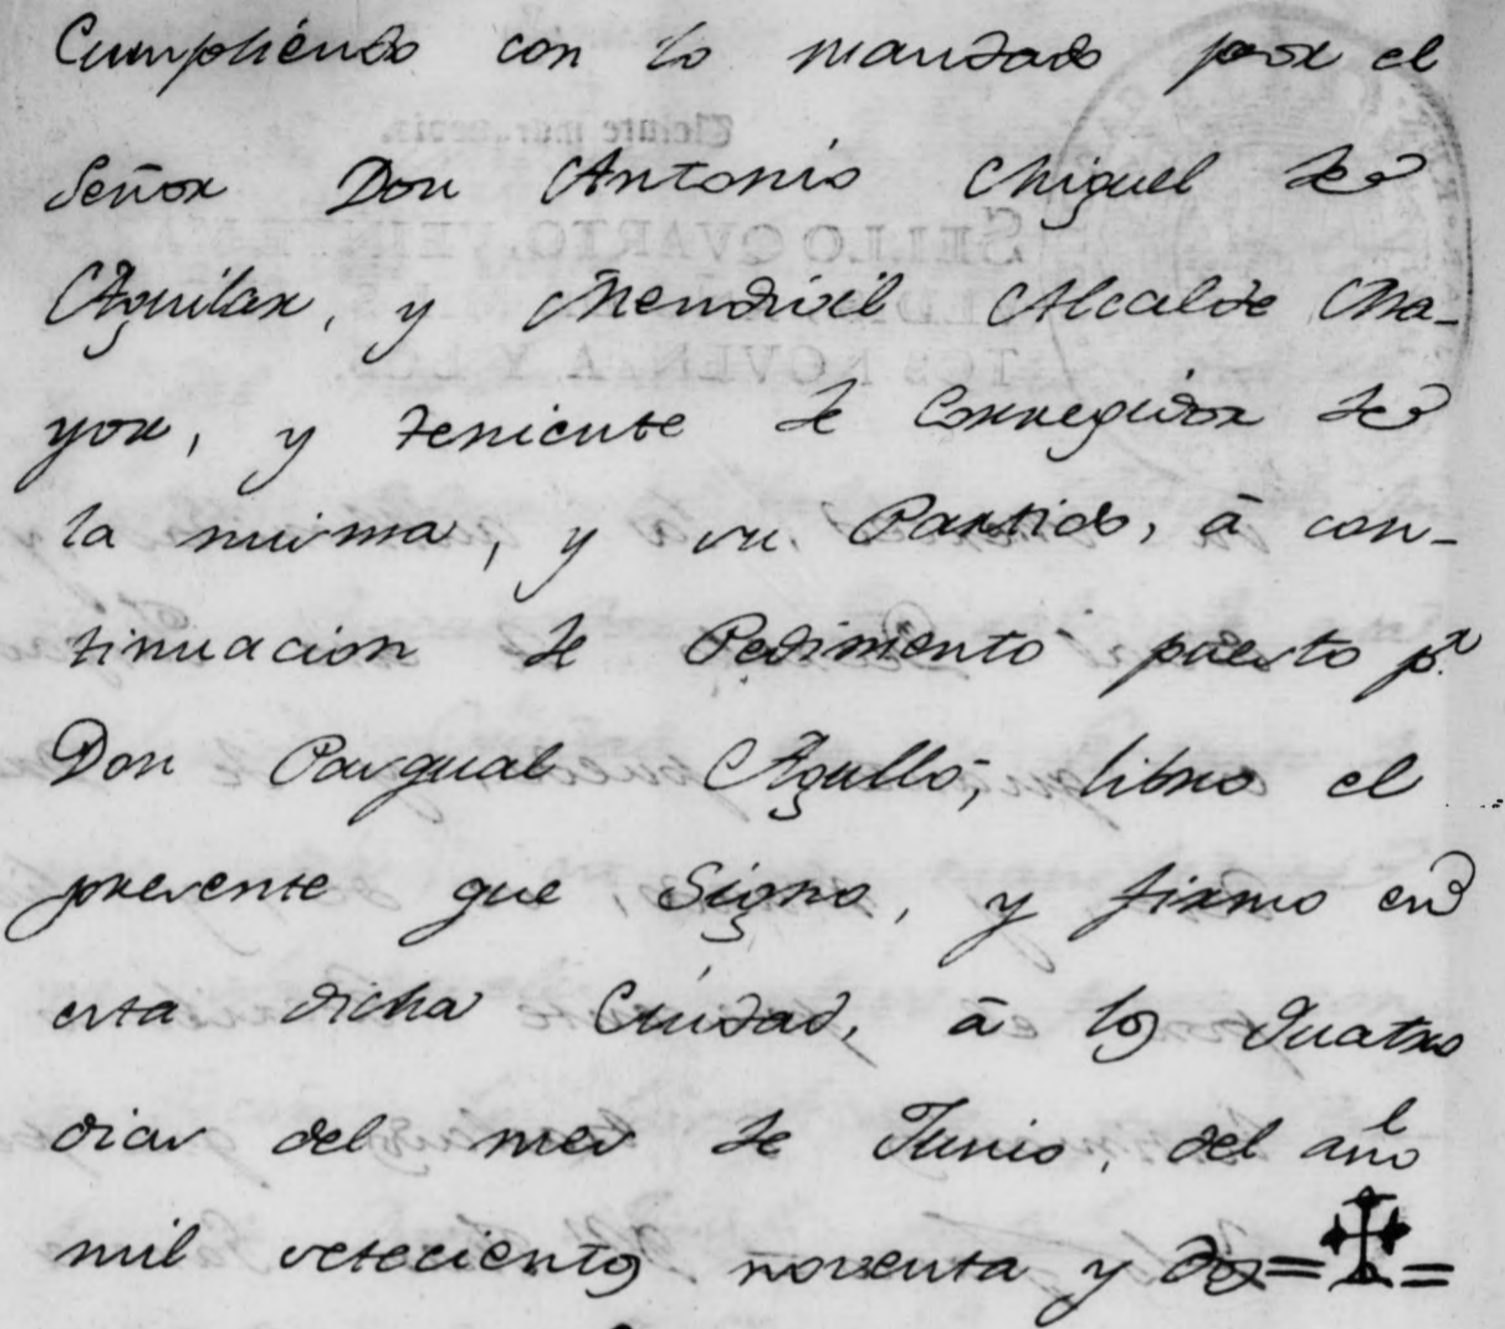 Cumpliendo con lo mandado por el
Señor Don Antonio Miguel de
Aguilar, y Mendivil Alcalde Ma-
yor, y teniente de Corregidor de
la misma, y su Partido, â con-
tinuacion de Pedimento puesto p.r
Don Pasqual Agulló, libro el
presente que Signo, y firmo en
esta dicha Ciudad, â los quatro
dias del mes de Junio, del año
mil setecientos noventa y dos=
=